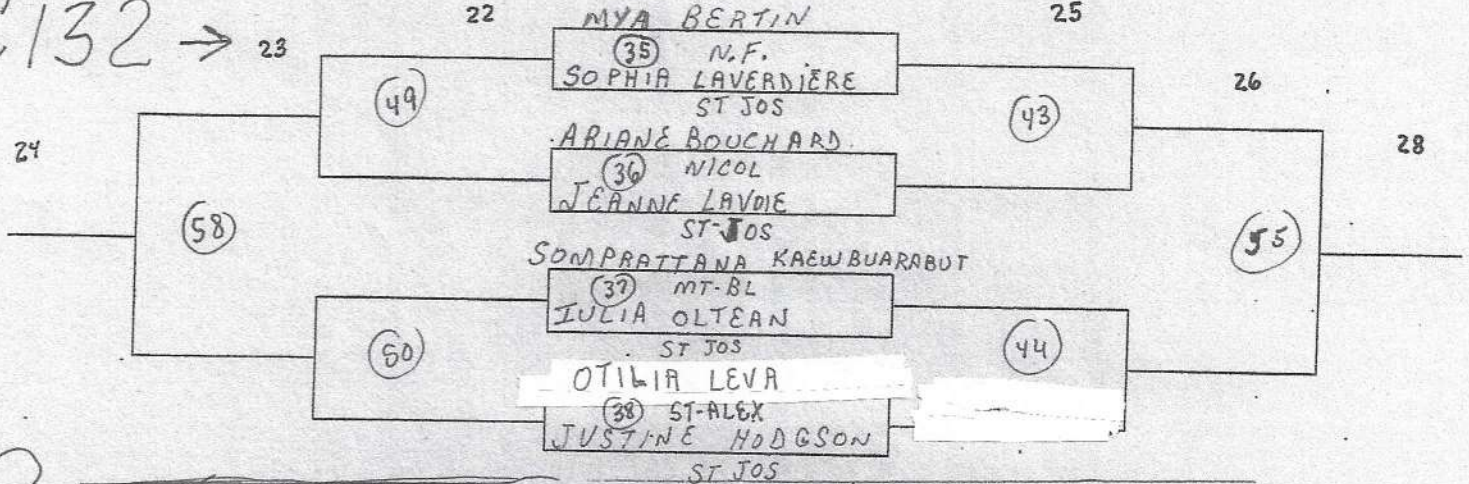 132 → 23
22
25
MYA BERTIN
35 N.F.
SOPHIA LAVERDIÈRE
ST JOS
49
43
26
24
28
ARIANE BOUCHARD
36 NICOL
JEANNE LAVOIE
ST-JOS
58
55
SOMPRATTANA KAEWBUARABUT
37 MT-BL
IULIA OLTEAN
ST JOS
50
44
OTILIA LEVA
38 ST-ALEX
JUSTINE HODGSON
ST JOS